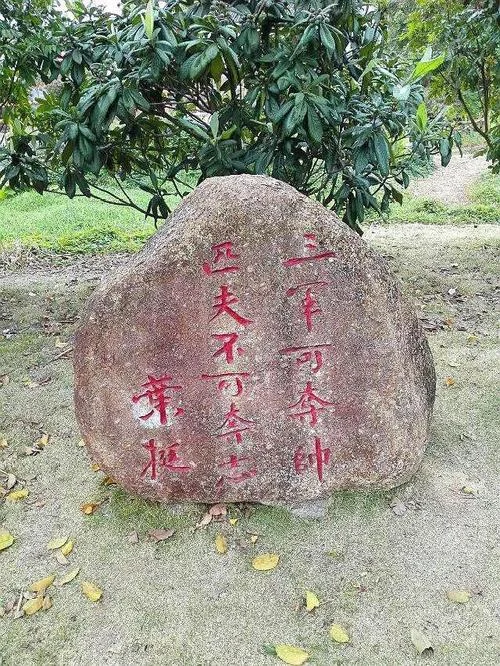 三军可夺帥
匹夫不可夺志
葉挺